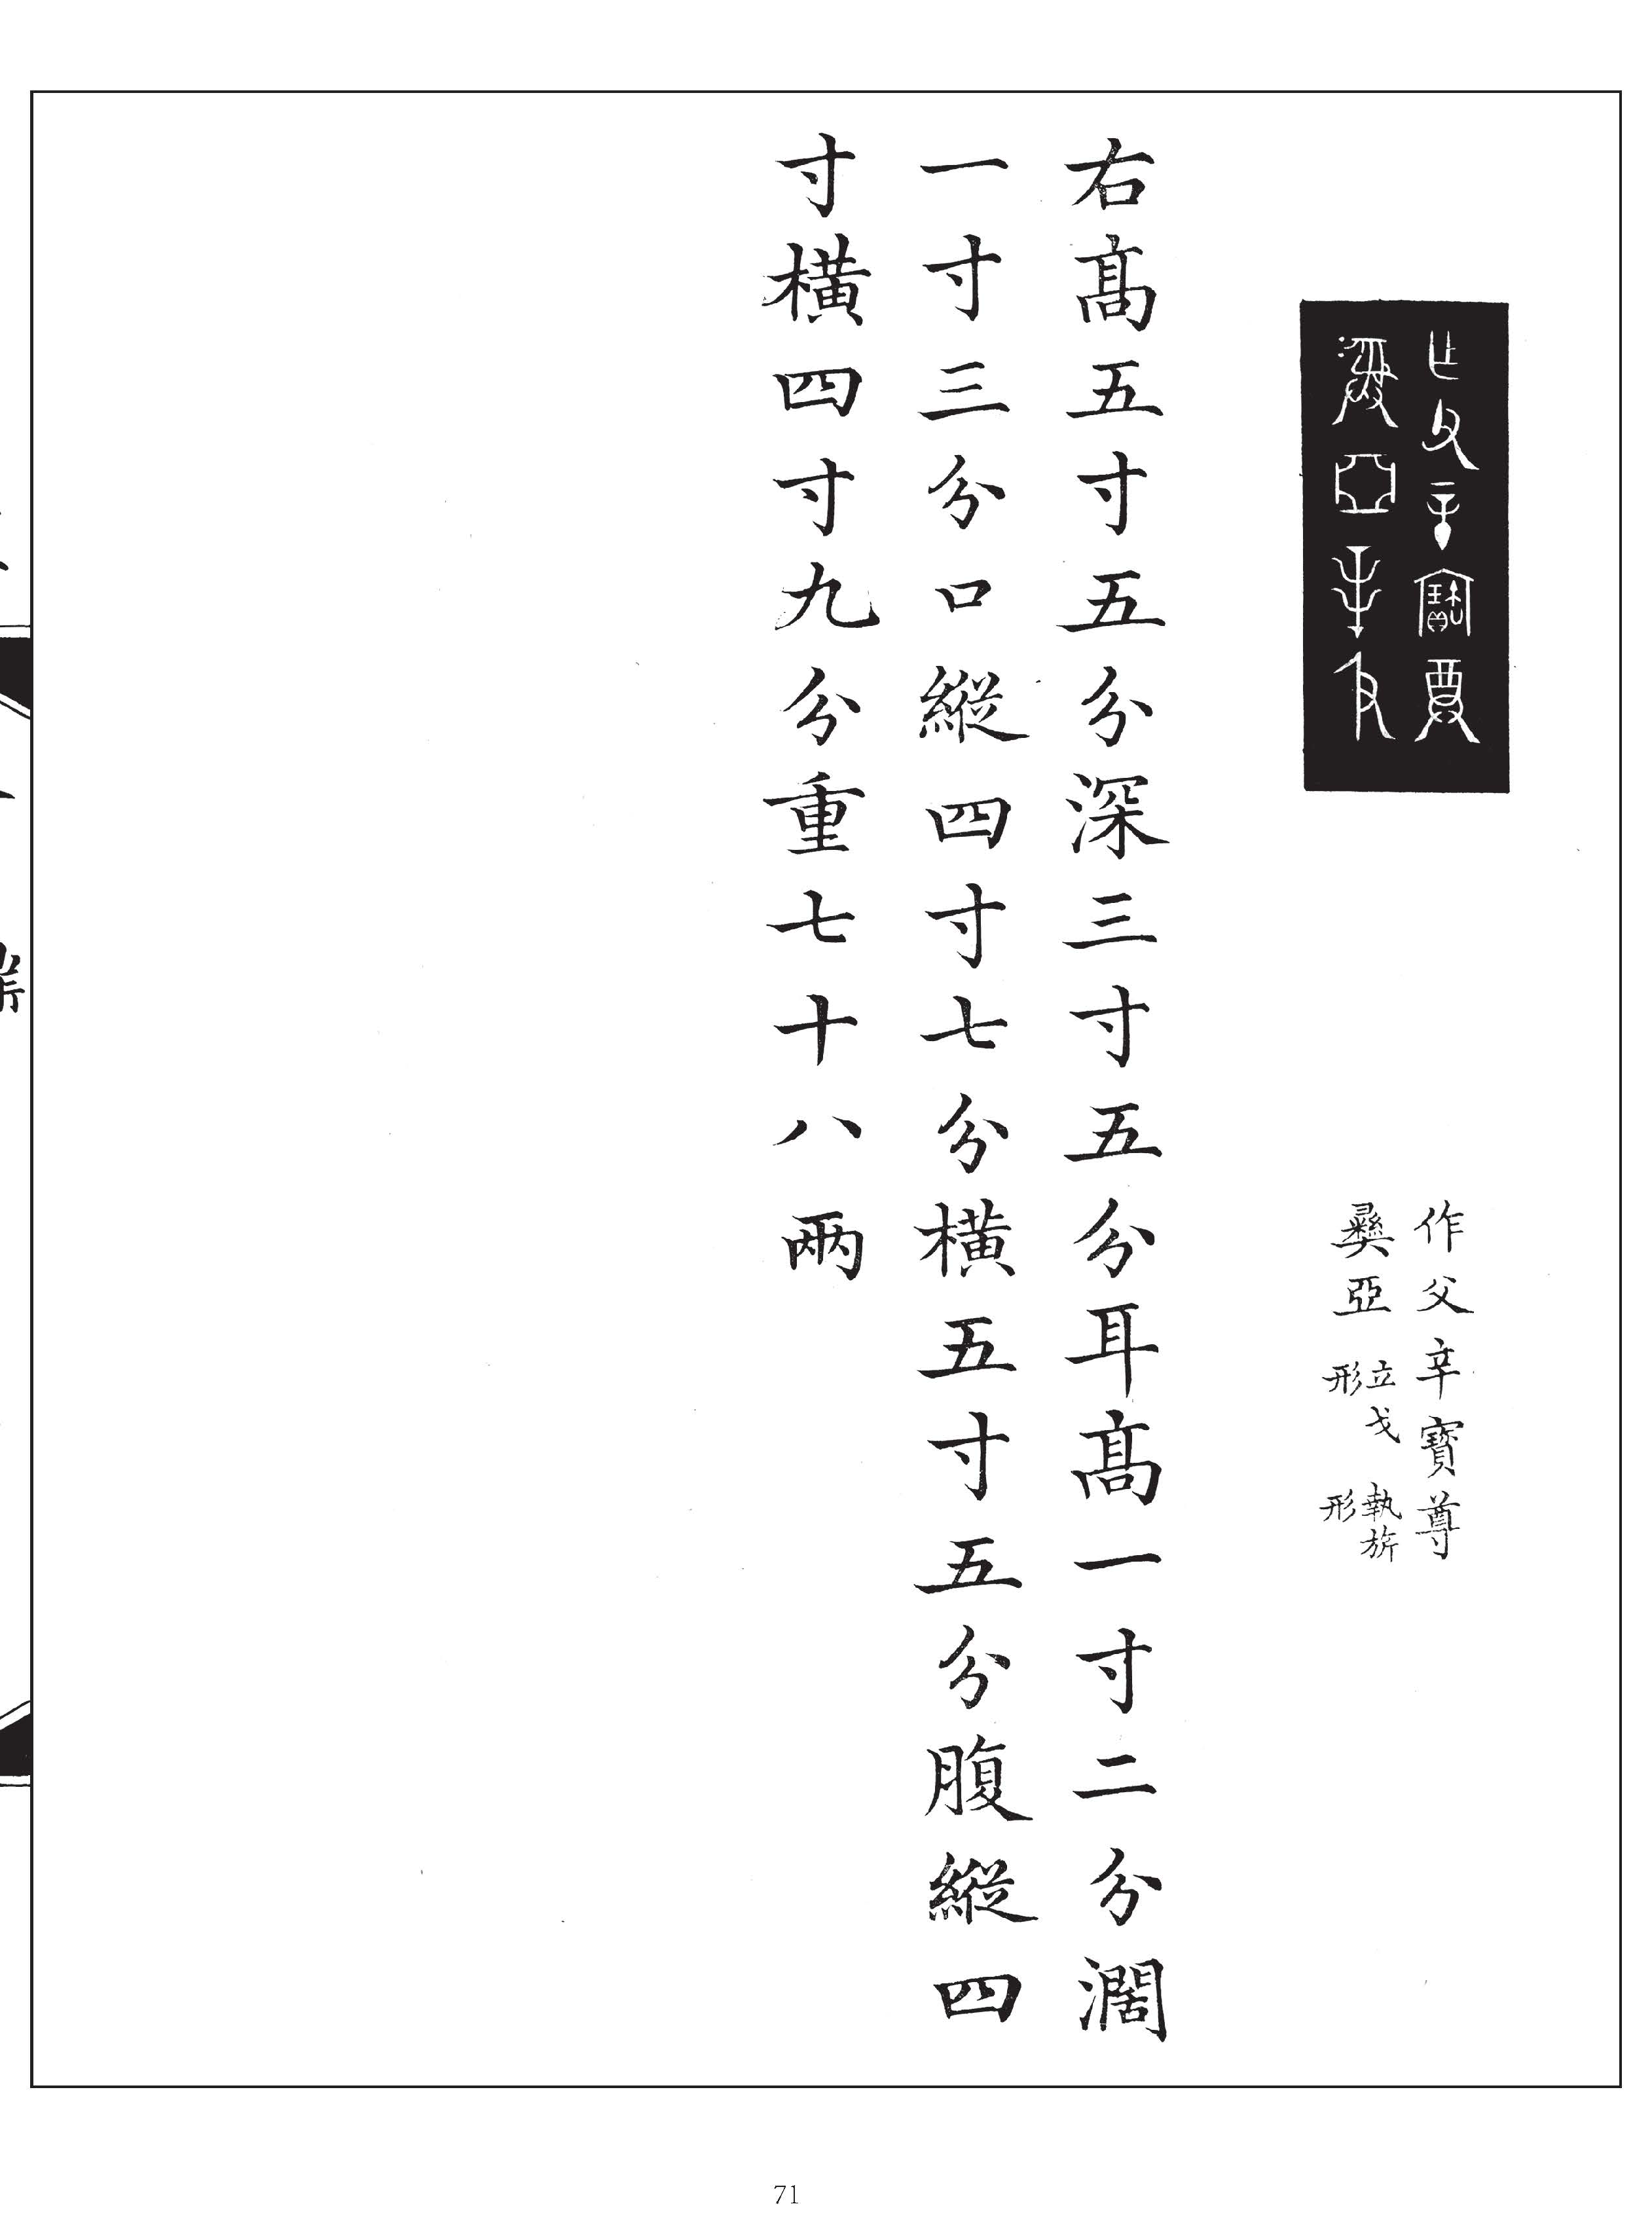 作父辛寶尊
彝亞立戈形執旂形
右髙五寸五分深三寸五分耳髙一寸二分濶
一寸三分口縱四寸七分橫五寸五分腹縱四
寸橫四寸九分重七十八兩
71